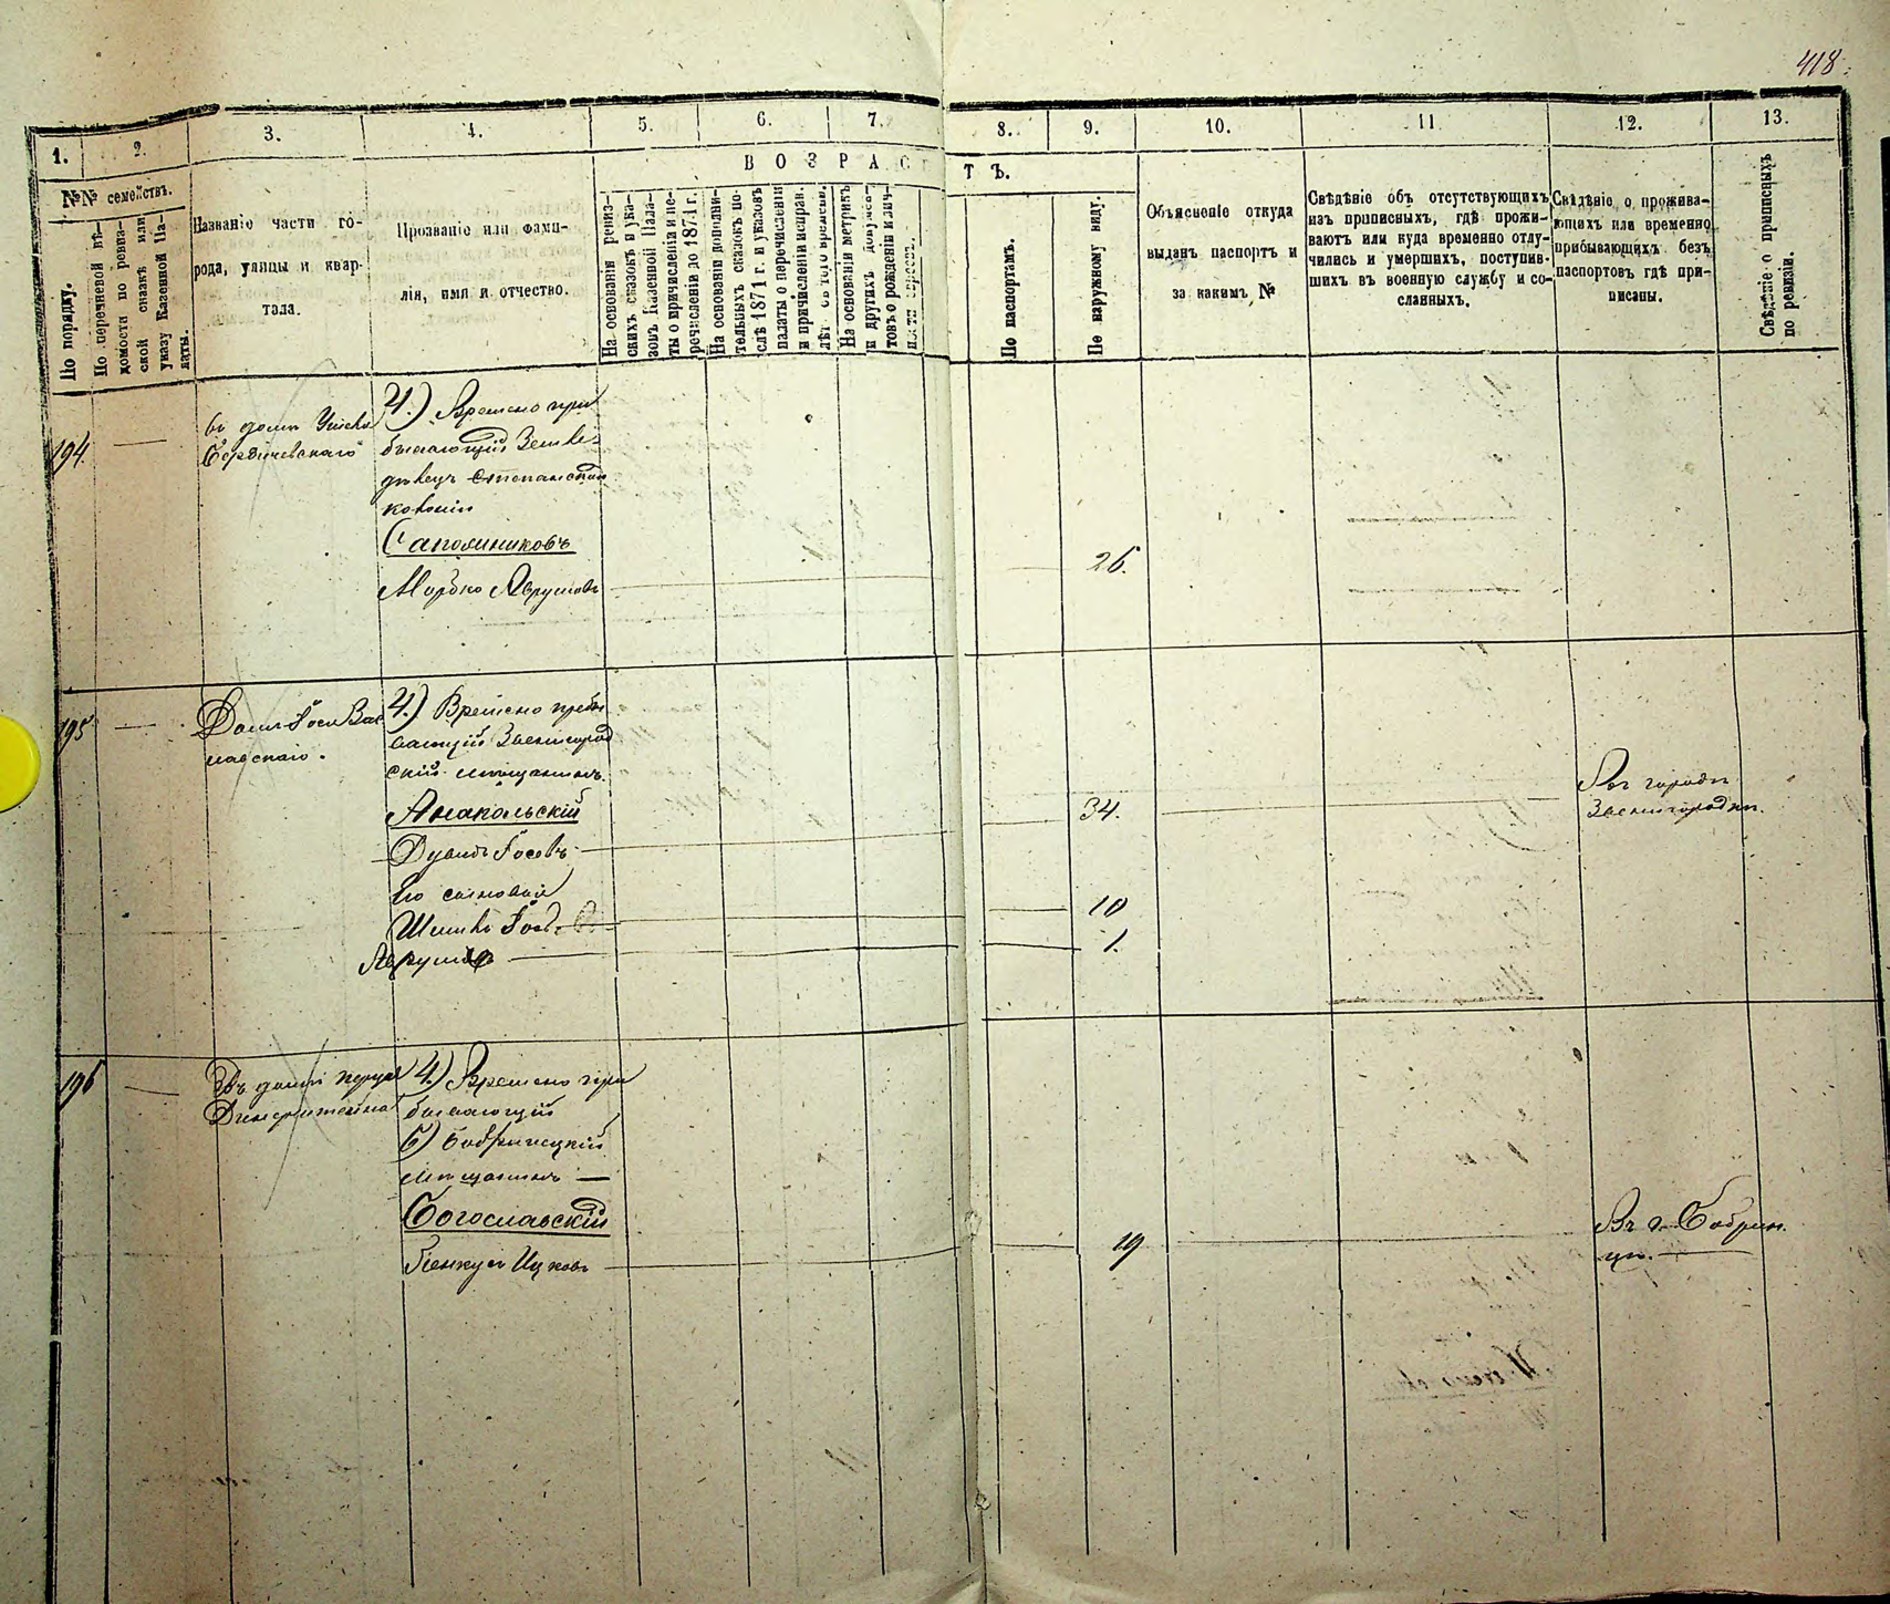 418
1.
2.
3.
4.
5.
6.
7.
8.
9.
10.
11.
12.
13.
ВОЗРАСТЪ.
№№ семействъ.
По порядку.
По перечневой вѣ-
домости по ревиз-
ской сказкѣ или
указу Казенной Па-
латы.
Названіе части го-
рода, улицы и квар-
тала.
Прозваніе или фами-
лія, имя и отчество.
На основаніи ревиз-
скихъ сказокъ и ука-
зовъ Казенной Пала-
ты о причисленіи и пе-
речисленіи до 1871 г.
На основаніи дополни-
тельныхъ сказокъ по-
слѣ 1871 г. и указовъ
палаты о перечисленіи
и причисленіи исправ.
лѣт. съ того времени.
На основаніи метрикъ
и другихъ докумен-
товъ о рожденіи и лич-
По паспортамъ.
По наружному виду.
Объясненіе откуда
выданъ паспортъ и
за какимъ №
Свѣдѣніе объ отсутствующихъ
изъ приписныхъ, гдѣ прожи-
ваютъ или куда временно отлу-
чились и умершихъ, поступив-
шихъ въ военную службу и со-
сланныхъ.
Свѣдѣніе о прожива-
ющихъ или временно
прибывающихъ безъ
паспортовъ гдѣ при-
писаны.
Свѣдѣніе о приписныхъ
по ревизіи.
194.
въ домѣ
Бердичевскаго
4.) Времено при
бывающій Земле-
дѣлецъ
колоніи
Сапожниковъ
Мордко Аврумовъ
26.
195
Домъ Іоси
4.) Времено пребы
вающій Звенигород
скій мѣщанинъ.
Анапольскій
34.
Въ городѣ
Звенигородкѣ.
Дувидъ Іосевъ
Его сыновья
10
Аврумъ
1.
196
Въ домѣ
Динерштейна
4.) Времено при
бывающій
Б) Бобринецкій
мѣщанинъ
Богославскій
Ицковъ
19
Въ г. Бобрин
цѣ.